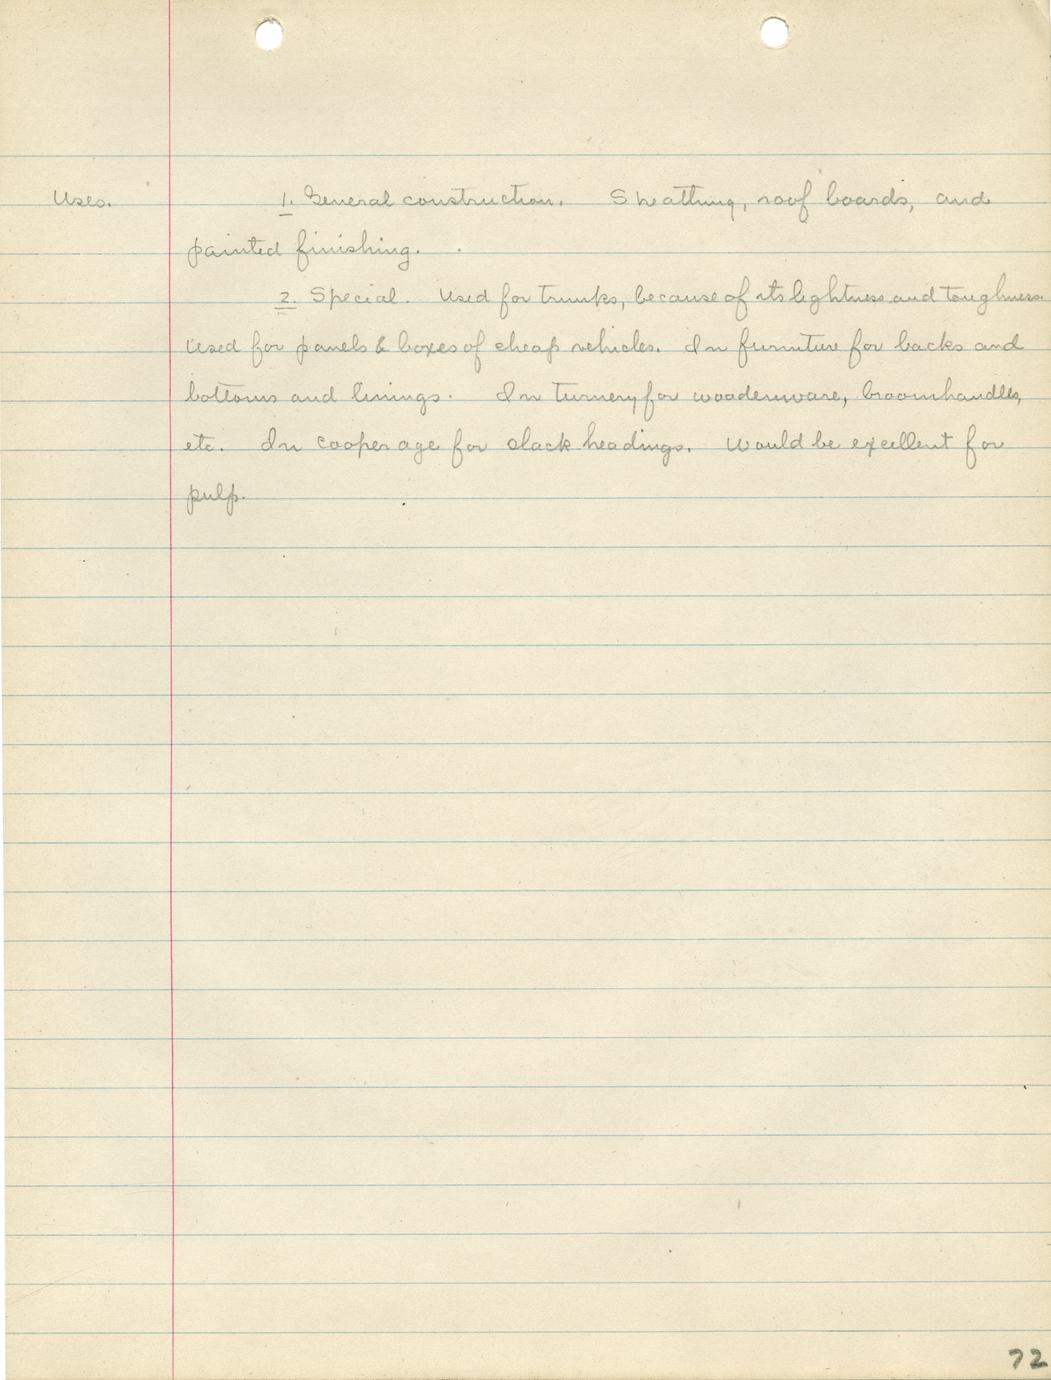 Uses. 1. General construction. Sheathing, roof boards, and
painted finishing.
2. Special. Used for trunks, because of its lightness and toughness
Used for panels & boxes of cheap vehicles. In furniture for backs and
bottoms and linings. In turnery for woodenware, broomhandles,
etc. In cooperage for slack headings. Would be excellent for
pulp.
72